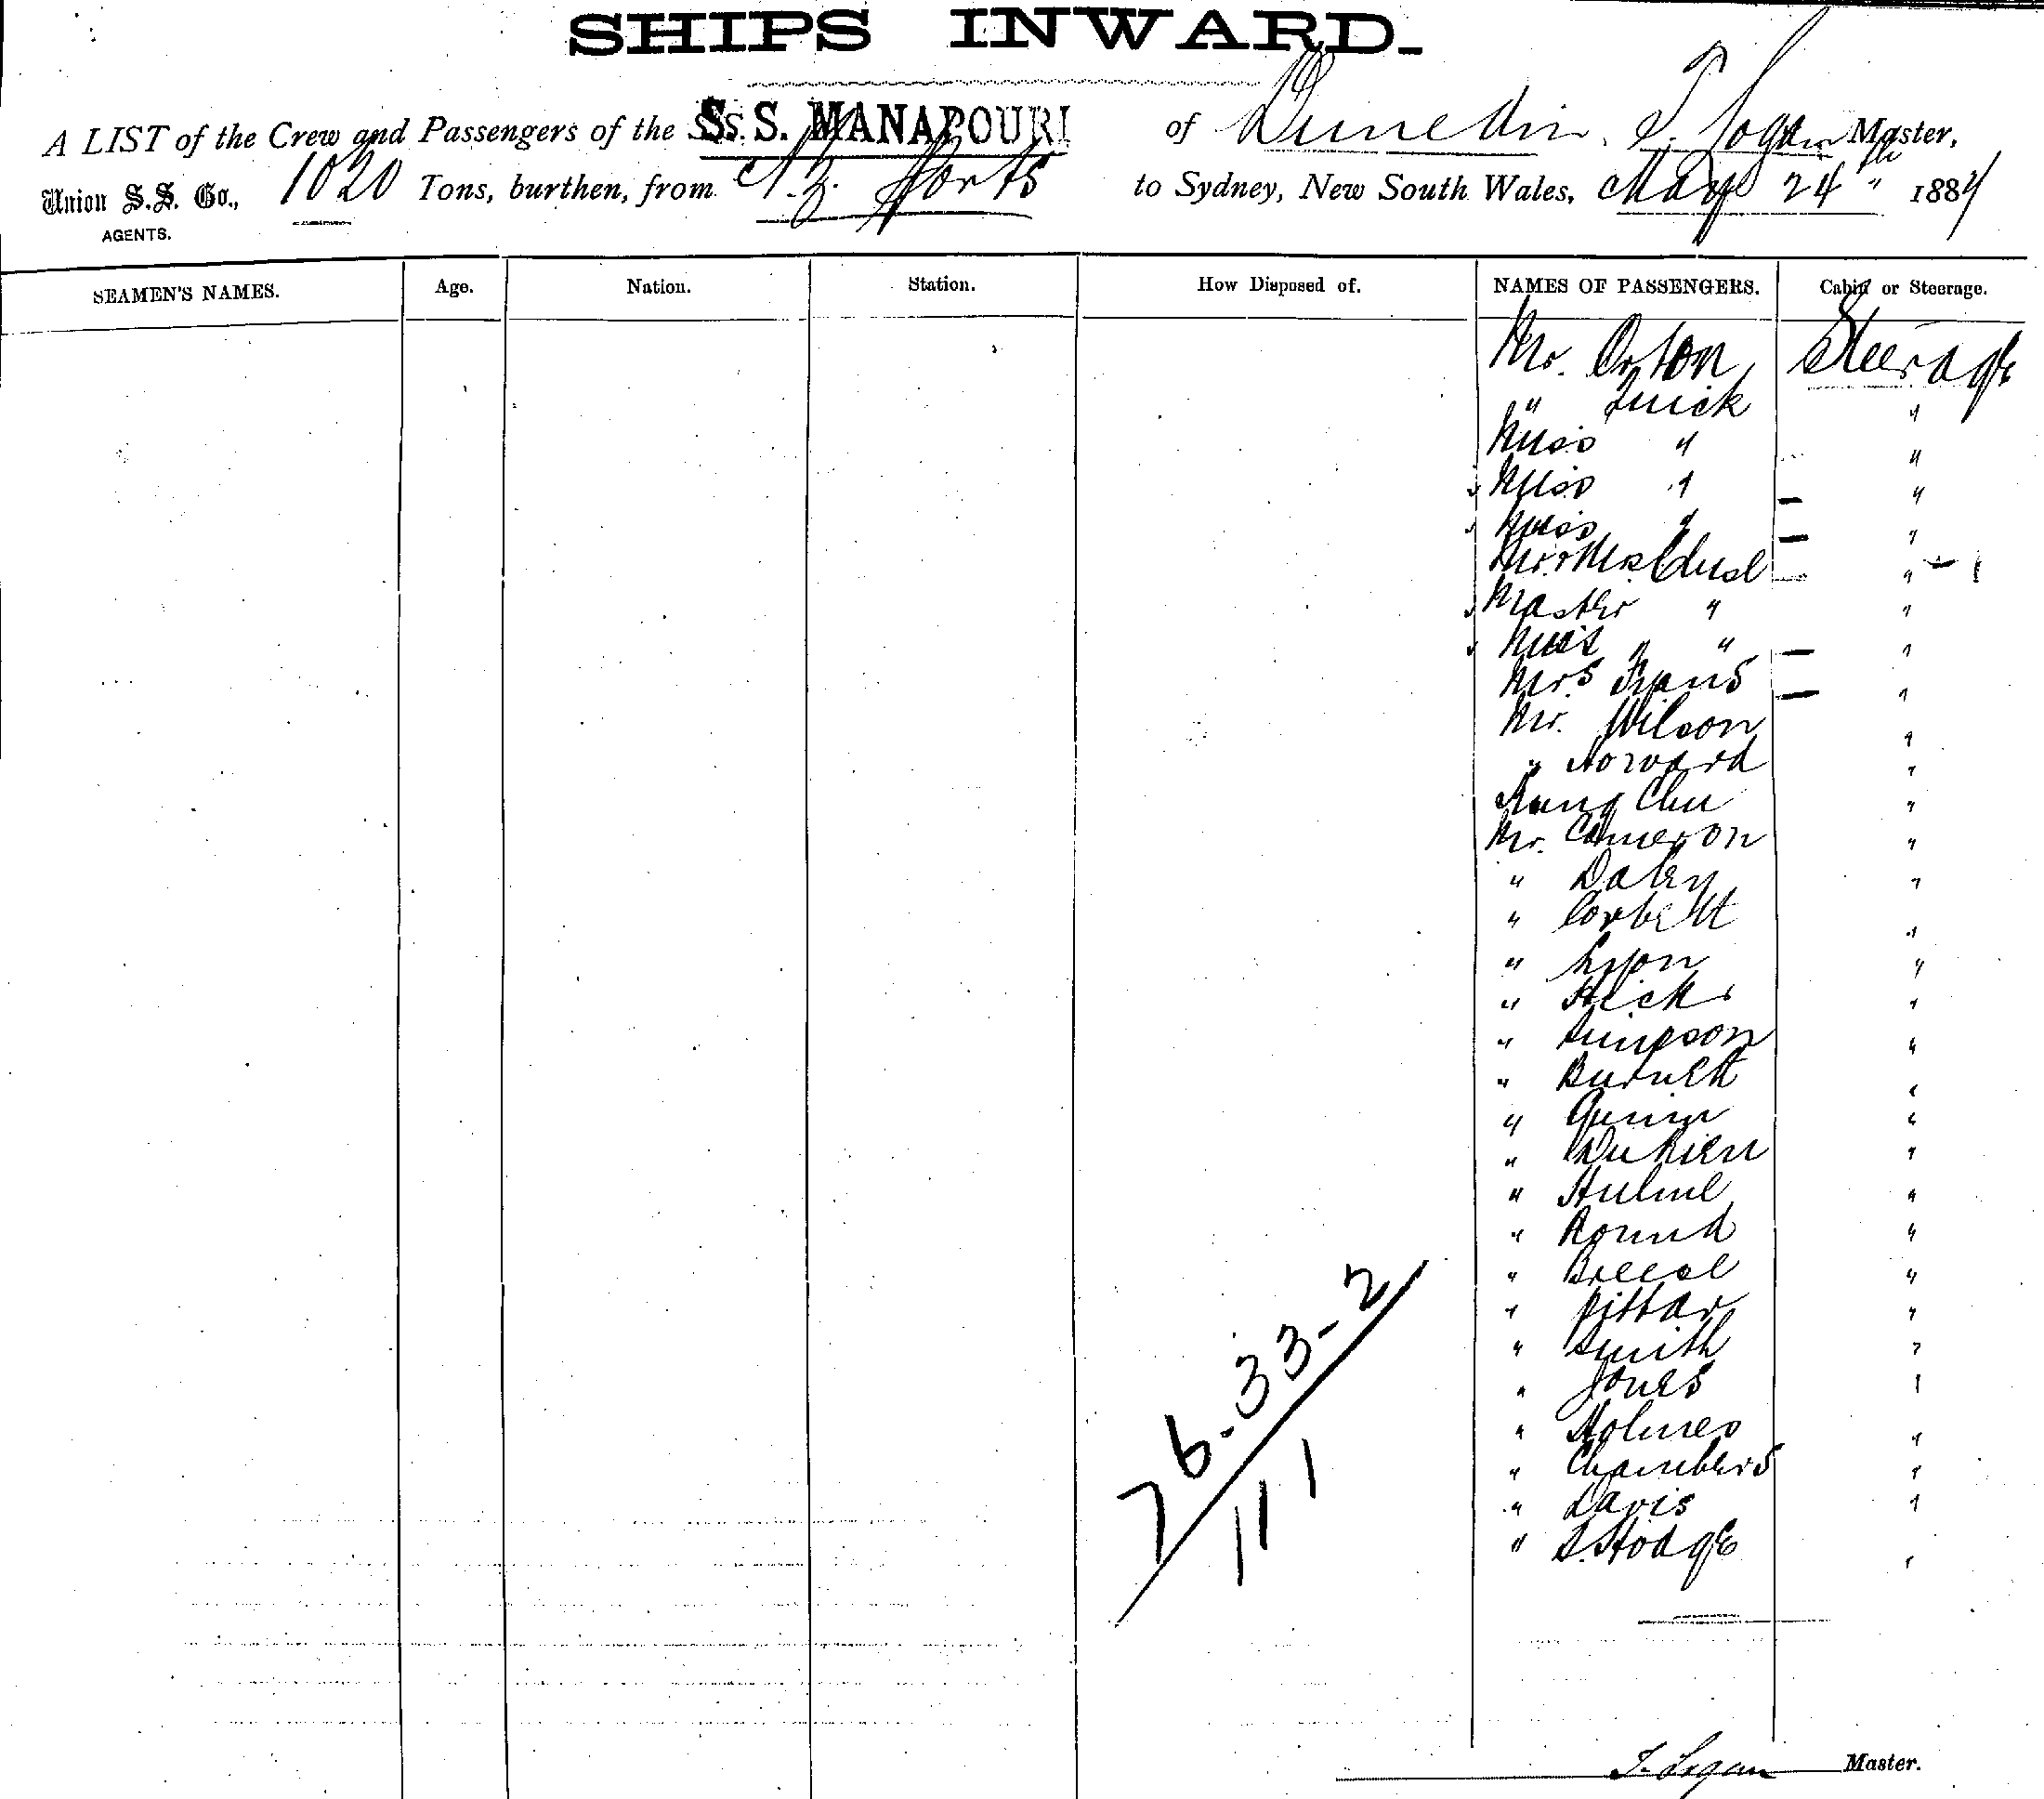 SHIPS INWARD.
A LIST of the Crew and Passengers of the S.S. MANAPOURI of Dunedin, T. Logan Master,
Union S.S. Co., 1020 Tons, burthen, from N.Z. Ports to Sydney, New South Wales, May 24th 1884
AGENTS.
SEAMEN'S NAMES. Age. Nation. Station. How Disposed of. NAMES OF PASSENGERS. Cabin or Steerage.
Mr. Orton Steerage
" Quick "
Miss " "
Miss " "
Miss " "
Mr. & Mrs "
Master " "
Miss " "
Mrs "
Mr. Wilson "
" Norward "
Kung Chu "
Mr. Cameron "
" Daley "
" Corbett "
" Lyon "
" Hicks "
" Simpson "
" Burnett "
" "
" "
" Hulme "
" Round "
" Breese "
" Pittar "
" Smith "
" Jones "
" Holmes "
" Chambers "
" Davis "
" S. Hodge "
76-33-2
111
T. Logan Master.